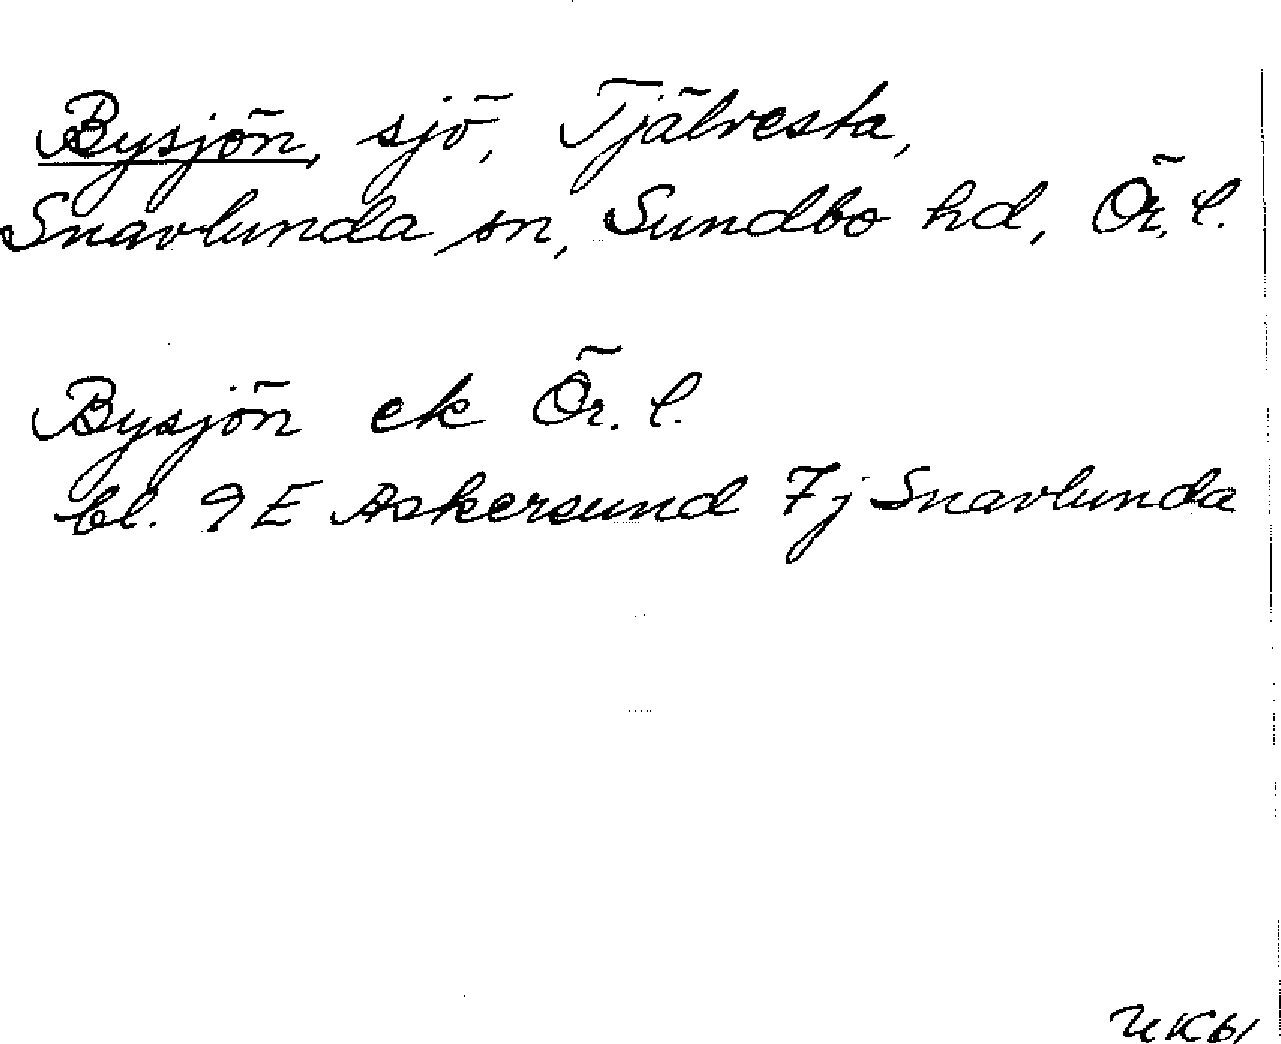 Bysjön, sjö, Tjälvesta,
Snavlunda sn, Sundbo hd, Ör. l.
Bysjön ek Ör. l.
bl. 9E Askersund 7j Snavlunda